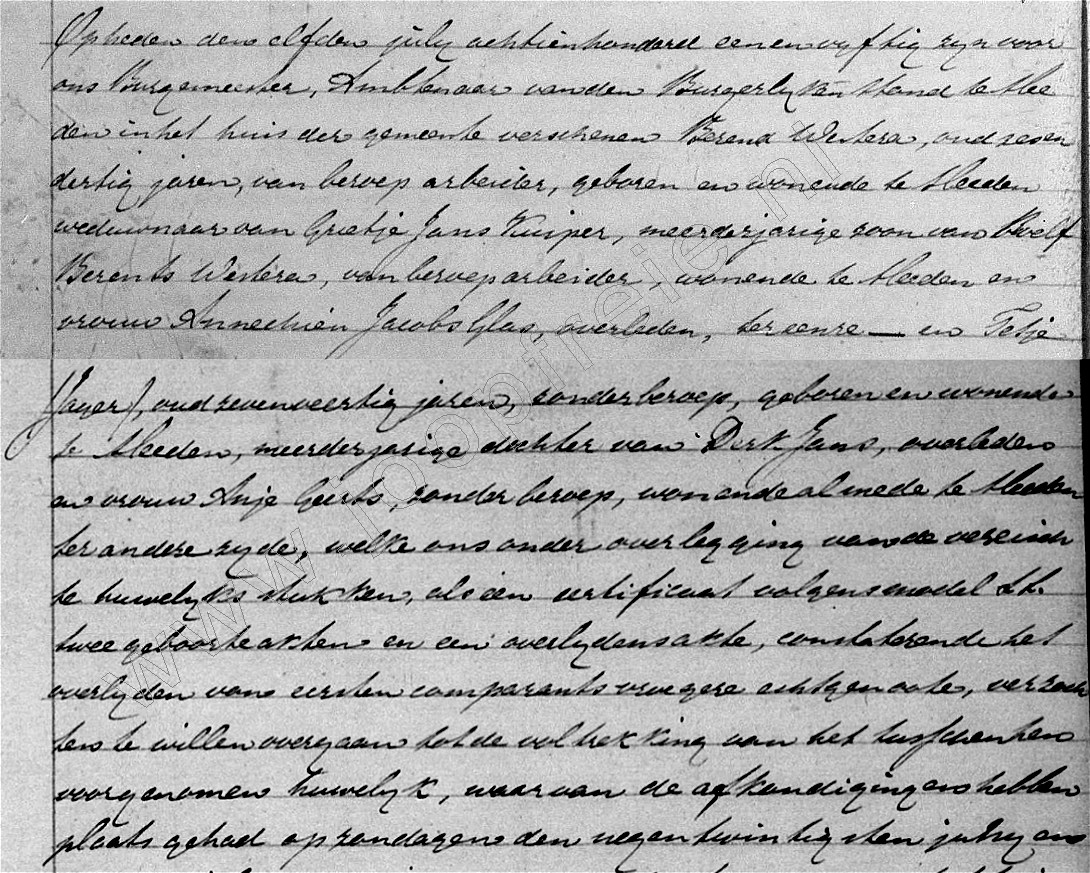 Op heden den elfden july achtienhonderd eenenvyftig zyn voor
ons Burgemeester, Ambtenaar van den Burgerlyken Stand te Mee
den in het huis der gemeente verschenen Berend Westera, oud zesen
dertig jaren, van beroep arbeider, geboren en wonende te Meeden
weduwnaar van Grietje Jans Kuiper, meerderjarige zoon van Roelf
Berents Westera, van beroep arbeider, wonende te Meeden en
vrouw Annechien Jacobs Glas, overleden, ter eenre — en Tetje
(Jager), oud zevenveertig jaren, zonder beroep, geboren en wonende
te Meeden, meerderjarige dochter van Derk Jans, overleden
en vrouw Anje Geerts, zonder beroep, wonende almede te Meeden
ter andere zyde, welke ons onder overlegging van de vereisch
te huwelyks stukken, als een certificaat volgens model
twee geboorteakten en een overlydensakte, constaterende het
overlyden van eersten comparants vroegere echtgenoote, verzoch
ten te willen overgaan tot de voltrekking van het tusschen hen
voorgenomen huwelyk, waarvan de afkondigingen hebben
plaats gehad op zondagen den negentwintigsten en
www.loopfreie.nl